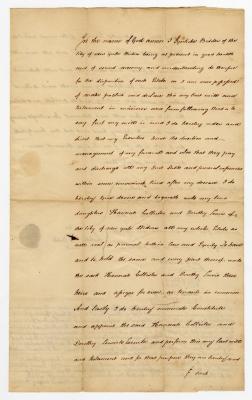 In the name of God amen I Rachel Bridon of the
City of New York Widow being at present in good health
and of sound memory and understanding do therefore
for the disposition of such Estate as I am now possessed
of make publish and declare this my last will and
testament in manner and form following that is to
say first my will is and I do hereby order and
direct that my Executors have the direction and
management of my funeral and also that they pay
and discharge all my just debts and funeral expences
within some convenient time after my decease I do
hereby Give devise and bequeath unto my two
daughters Hannah Collister and Dorothy Lewis of
the City of New York Widows all my whole Estate as
well real as personal within Law and Equity To Have
and to hold the same and every part thereof unto
the said Hannah Collister and Dorothy Lewis their
heirs and assigns for ever as tenants in common
And lastly I do hereby nominate Constitute
and appoint the said Hannah Collister and
Dorothy Lewis to Execute and perform this my last will
and testament and for that purpose they are hereby